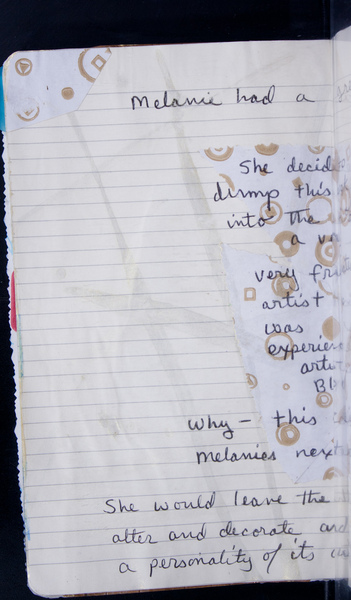 Melanie had a
She decid
dump this
into the
a
very
artist
was
experien
Why – this
melanies next
She would leave the
alter and decorate and
a personality of its